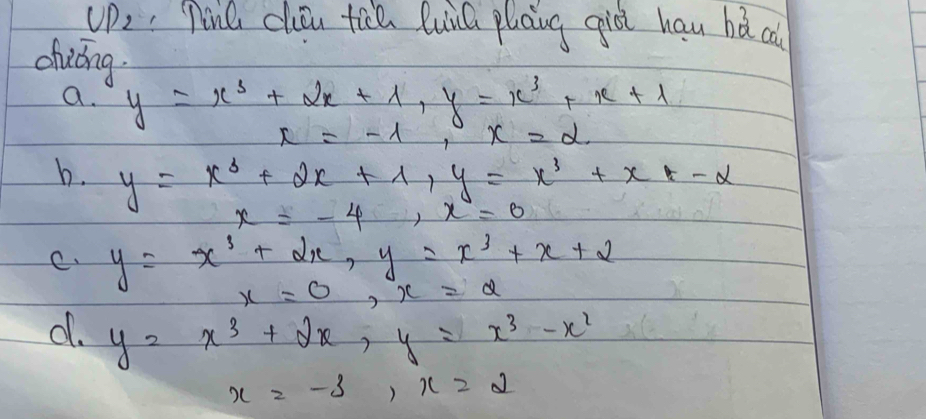 VD2: Tính diện tích hình phẳng giới hạn bởi các
đường.
a. y = x³ + 2x + 1, y = x³ + x + 1
x = -1, x = 2
b. y = x³ + 2x + 1, y = x³ + x - 2
x = -4, x = 0
c. y = x³ + 2x, y = x³ + x + 2
x = 0, x = 2
d. y = x³ + 2x, y = x³ - x²
x = -3, x = 2